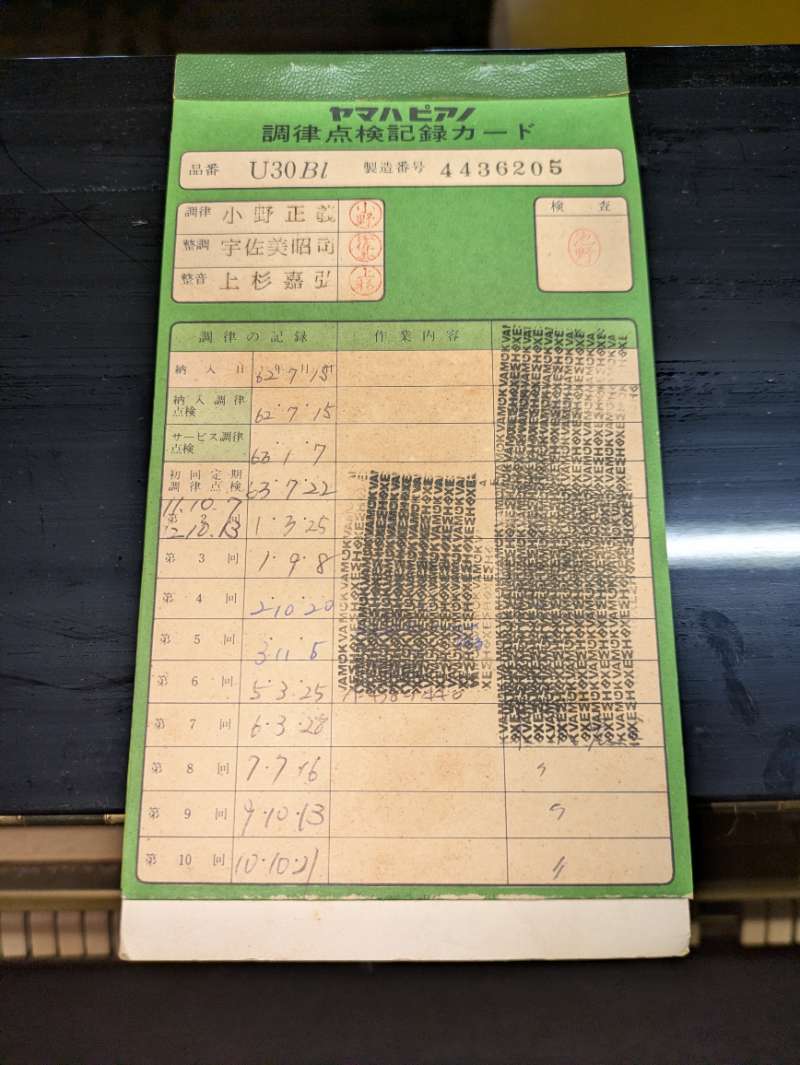 ヤマハピアノ
調律点検記録カード
品番 U30Bl 製造番号 4436205
調律 小野正義 小野
整調 宇佐美昭司
整音 上杉嘉弘 上杉
検査
池野
調律の記録 作業内容
納入日 62年7月15日
納入調律点検 62・7・15
サービス調律点検 63・1・7
初回定期調律点検 63・7・22
11.10.7
第2回 1・3・25
12.10.13
第3回 1・9・8
第4回 2・10・20
第5回 3・11・5
第6回 5・3・25
第7回 6・3・28
第8回 7・7・16 〃
第9回 9・10・13 〃
第10回 10・10・21 〃